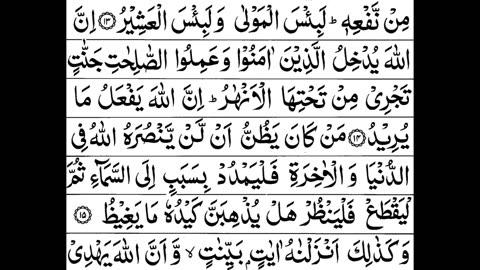 مِنْ نَّفْعِهٖ ؕ لَبِئْسَ الْمَوْلٰى وَ لَبِئْسَ الْعَشِيْرُ ﴿۱۳﴾ اِنَّ
اللّٰهَ يُدْخِلُ الَّذِيْنَ اٰمَنُوْا وَعَمِلُوا الصّٰلِحٰتِ جَنّٰتٍ
تَجْرِىْ مِنْ تَحْتِهَا الْاَنْهٰرُ ؕ اِنَّ اللّٰهَ يَفْعَلُ مَا
يُرِيْدُ ﴿۱۴﴾ مَنْ كَانَ يَظُنُّ اَنْ لَّنْ يَّنْصُرَهُ اللّٰهُ فِى
الدُّنْيَا وَ الْاٰخِرَةِ فَلْيَمْدُدْ بِسَبَبٍ اِلَى السَّمَآءِ ثُمَّ
لْيَقْطَعْ فَلْيَنْظُرْ هَلْ يُذْهِبَنَّ كَيْدُهٗ مَا يَغِيْظُ ﴿۱۵﴾
وَ كَذٰلِكَ اَنْزَلْنٰهُ اٰيٰتٍۭ بَيِّنٰتٍ ۙ وَّ اَنَّ اللّٰهَ يَهْدِىْ